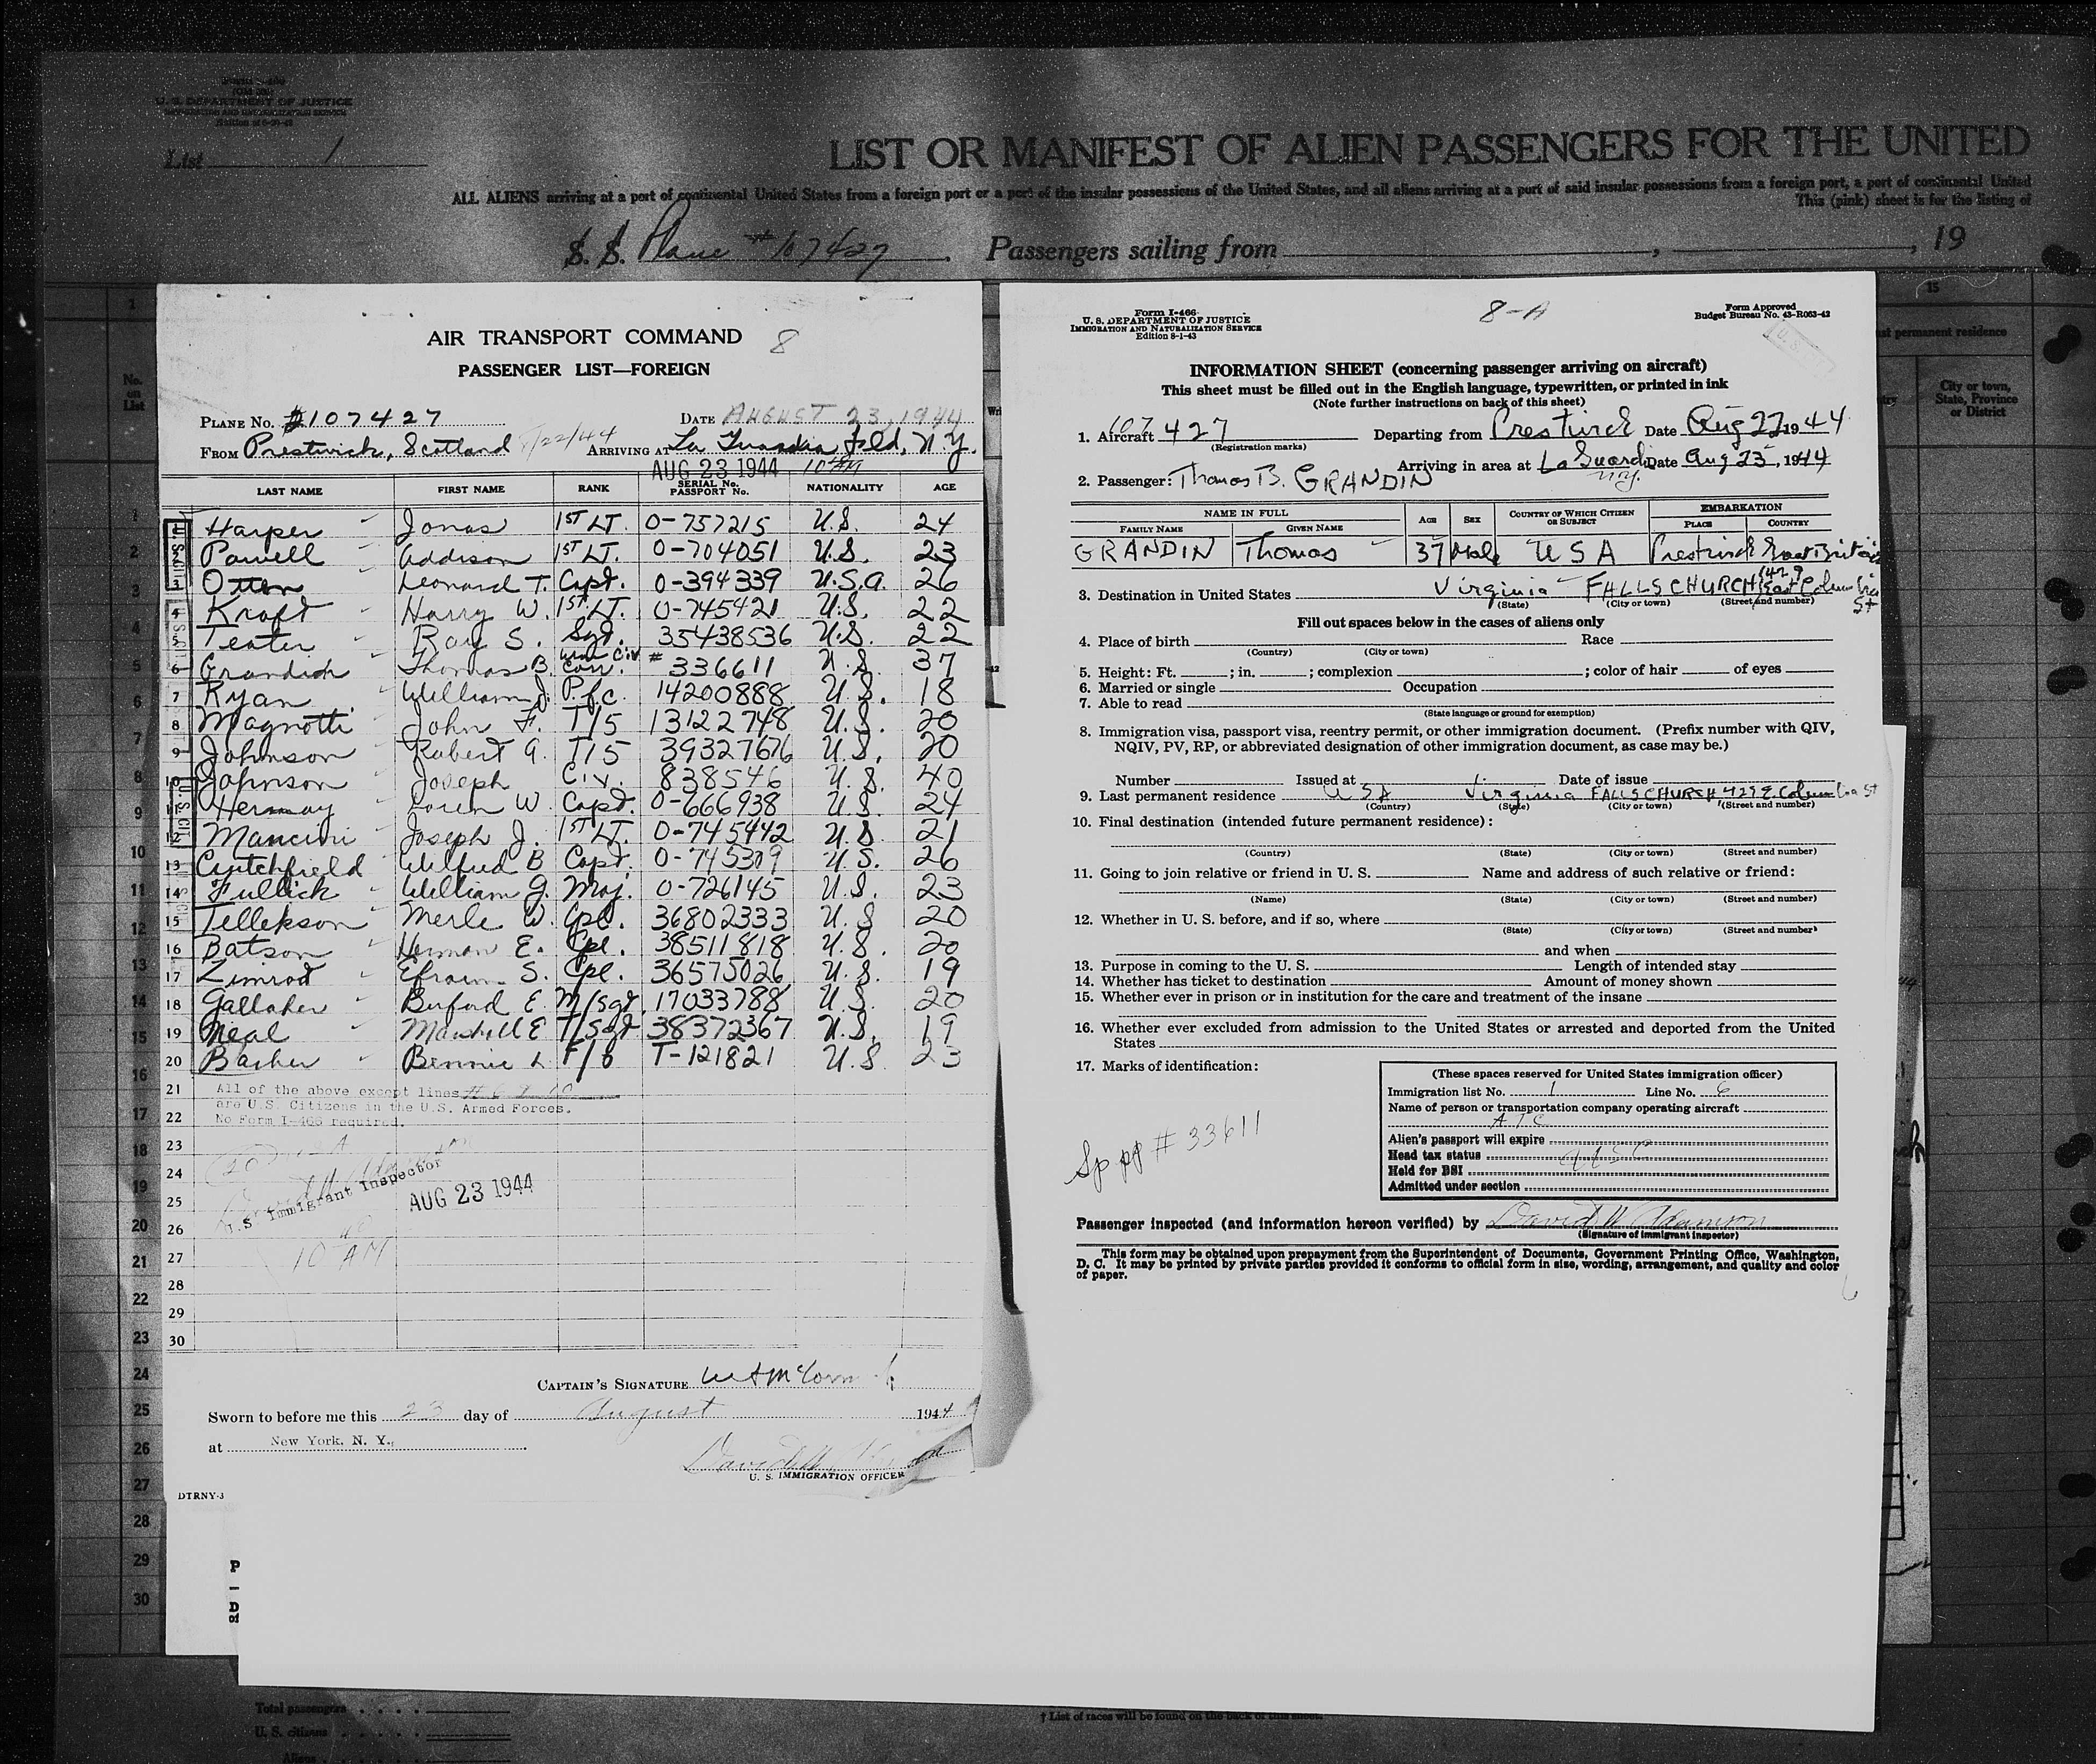 Form I-466
U. S. DEPARTMENT OF JUSTICE
IMMIGRATION AND NATURALIZATION SERVICE
List 1
LIST OR MANIFEST OF ALIEN PASSENGERS FOR THE UNITED
ALL ALIENS arriving at a port of continental United States from a foreign port or a port of the insular possessions of the United States, and all aliens arriving at a port of said insular possessions from a foreign port, a port of continental United
This (pink) sheet is for the listing of
S. S. Plane #107427 Passengers sailing from , , 19
AIR TRANSPORT COMMAND 8
PASSENGER LIST—FOREIGN
PLANE No. #107427 DATE AUGUST 23, 1944
FROM Prestwick, Scotland 8/22/44 ARRIVING AT La Guardia Feld, N.Y.
AUG 23 1944 10 AM
LAST NAME FIRST NAME RANK SERIAL No. PASSPORT No. NATIONALITY AGE
1 Harper Jonas 1ST LT. 0-757215 U.S. 24
2 Powell Addison 1ST LT. 0-704051 U.S. 23
3 Otten Leonard T. Capt. 0-394339 U.S.A. 26
4 Kraft Harry W. 1ST LT. 0-745421 U.S. 22
5 Teater Ray S. Sgt. 35438536 U.S. 22
6 Grandich Thomas B. War Corr. Civ # 336611 U.S. 37
7 Ryan William J. Pfc. 14200888 U.S. 18
8 Magnotti John F. T/5 13122748 U.S. 20
9 Johnson Robert G. T/5 39327676 U.S. 20
10 Johnson Joseph Civ. 838546 U.S. 40
11 Hermay Loren W. Capt. 0-666938 U.S. 24
12 Mancini Joseph J. 1ST LT. 0-745442 U.S. 21
13 Cutchfield Wilfred B Capt. 0-745309 U.S. 26
14 Fullick William G. Maj. 0-726145 U.S. 23
15 Tellekson Merle W. Cpl. 36802333 U.S 20
16 Batson Herman E. Cpl. 38511818 U.S. 20
17 Zimrod Efraim S. Cpl. 36575026 U.S. 19
18 Gallaher Buford E. M/Sgt. 17033788 U.S. 20
19 Neal Marshall E T/Sgt 38372367 U.S. 19
20 Basher Bennie L F/O T-121821 U.S 23
21 All of the above except lines #6 & 10
are U.S. Citizens in the U.S. Armed Forces.
22 No Form I-466 required.
23
24
U.S. Immigrant Inspector
25 AUG 23 1944
26
27 10 AM
28
29
30
CAPTAIN'S SIGNATURE
Sworn to before me this 23 day of August 1944
at New York, N. Y.
U. S. IMMIGRATION OFFICER
DTRNY-3
Form I-466
U. S. DEPARTMENT OF JUSTICE
IMMIGRATION AND NATURALIZATION SERVICE
Edition 8-1-43
8-A
Form Approved
Budget Bureau No. 43-R063-42
INFORMATION SHEET (concerning passenger arriving on aircraft)
This sheet must be filled out in the English language, typewritten, or printed in ink
(Note further instructions on back of this sheet)
1. Aircraft 107427 Departing from Prestwick Date Aug 22 1944
(Registration marks)
Arriving in area at La Guardia N.Y. Date Aug 23, 1944
2. Passenger: Thomas B. GRANDIN
NAME IN FULL AGE SEX COUNTRY OF WHICH CITIZEN OR SUBJECT EMBARKATION
FAMILY NAME GIVEN NAME PLACE COUNTRY
GRANDIN Thomas 37 Male USA Prestwick Great Britain
3. Destination in United States Virginia FALLS CHURCH 429 East Columbia St
(State) (City or town) (Street and number)
Fill out spaces below in the cases of aliens only
4. Place of birth Race
(Country) (City or town)
5. Height: Ft. ; in. ; complexion ; color of hair of eyes
6. Married or single Occupation
7. Able to read
(State language or ground for exemption)
8. Immigration visa, passport visa, reentry permit, or other immigration document. (Prefix number with QIV,
NQIV, PV, RP, or abbreviated designation of other immigration document, as case may be.)
Number Issued at Date of issue
9. Last permanent residence USA Virginia FALLS CHURCH 429 E Columbia St
(Country) (State) (City or town) (Street and number)
10. Final destination (intended future permanent residence):
(Country) (State) (City or town) (Street and number)
11. Going to join relative or friend in U. S. Name and address of such relative or friend:
(Name) (State) (City or town) (Street and number)
12. Whether in U. S. before, and if so, where
(State) (City or town) (Street and number)
and when
13. Purpose in coming to the U. S. Length of intended stay
14. Whether has ticket to destination Amount of money shown
15. Whether ever in prison or in institution for the care and treatment of the insane
16. Whether ever excluded from admission to the United States or arrested and deported from the United
States
17. Marks of identification:
(These spaces reserved for United States immigration officer)
Immigration list No. 1 Line No. 6
Name of person or transportation company operating aircraft
ATC
Alien's passport will expire
Head tax status USC
Held for BSI
Admitted under section
Sp pp # 33611
Passenger inspected (and information hereon verified) by David W Adamson
(Signature of immigrant inspector)
This form may be obtained upon prepayment from the Superintendent of Documents, Government Printing Office, Washington,
D. C. It may be printed by private parties provided it conforms to official form in size, wording, arrangement, and quality and color
of paper.
6
No. on List
15
permanent residence
City or town, State, Province or District
Total passengers
U. S. citizens
Aliens
† List of races will be found on the back of this sheet.